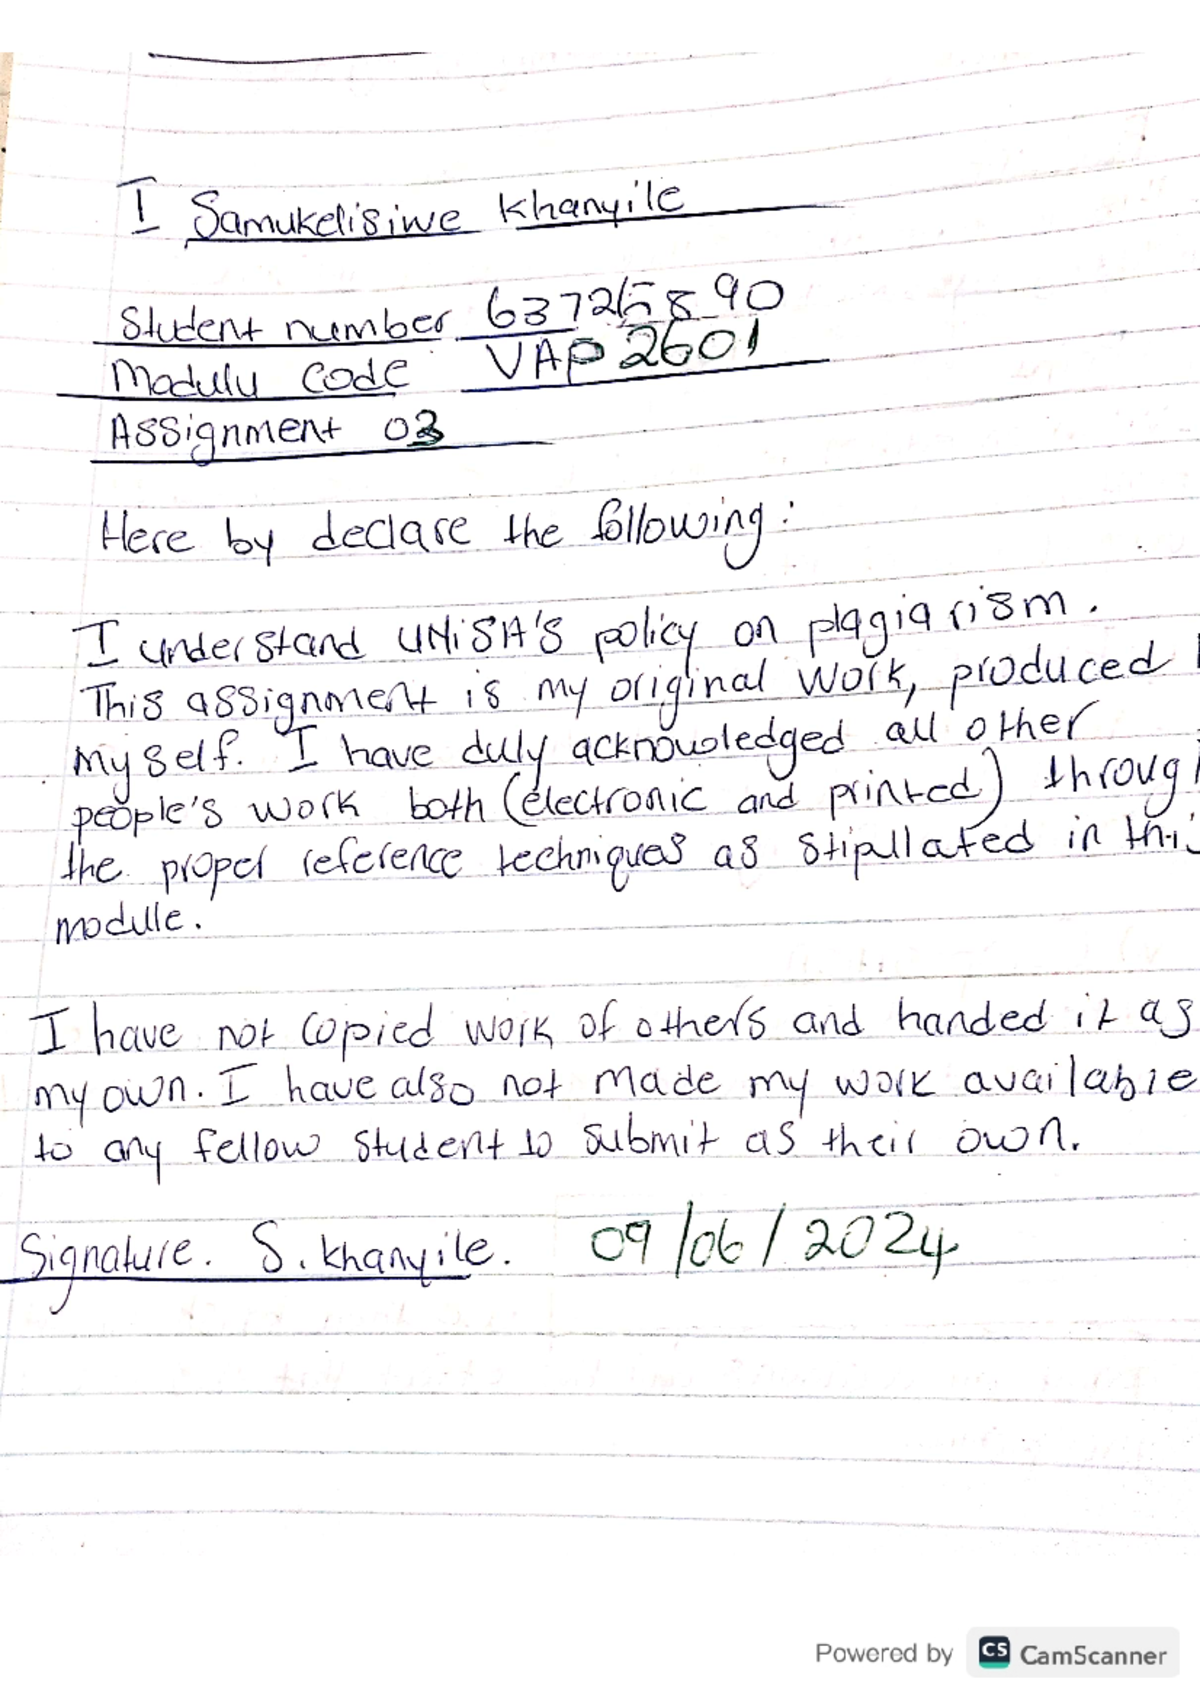 I Samukelisiwe Khanyile
Student number 63725890
Modulu Code VAP 2601
Assignment 03
Here by declare the following:
I understand UNiSA's policy on plagiarism.
This assignment is my original work, produced
myself. I have duly acknowledged all other
people's work both (electronic and printed) throug
the proper reference techniques as stipullated in thi
module.
I have not copied work of others and handed it as
my own. I have also not made my work available
to any fellow student to submit as their own.
Signature. S. Khanyile. 09/06/2024
Powered by CS CamScanner